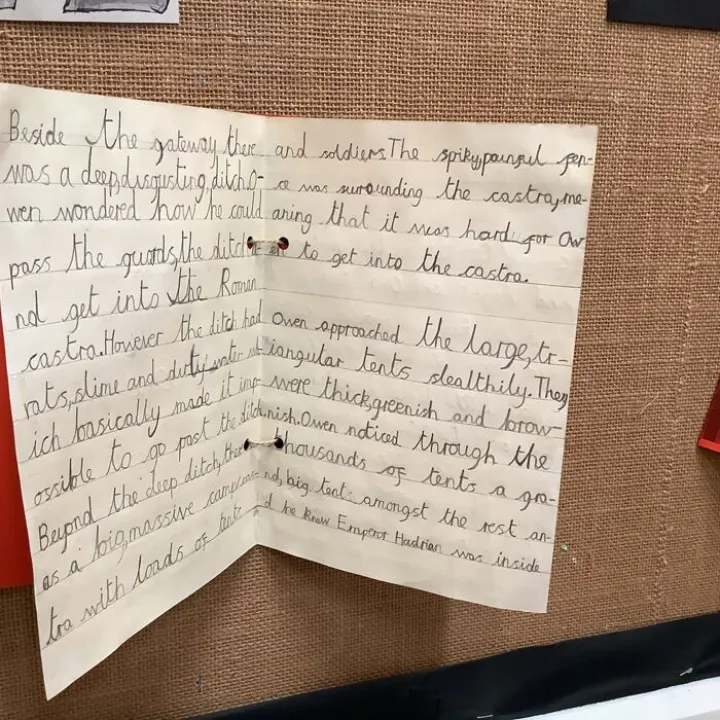 Beside the gateway, there
was a deep, disgusting, ditch. O-
wen wondered how he could
pass the guards, the ditch a-
nd get into the Roman
castra. However the ditch had
rats, slime and dirty water wh-
ich basically made it imp-
ossible to go past the ditch.
Beyond the deep ditch, there
as a big, massive camp, cas-
tra with loads of tents
and soldiers. The spiky, painful fen-
ce was surounding the castra, me-
aning that it was hard for Ow
en to get into the castra.
Owen approached the large, tr-
iangular tents slealthily. They
were thick, greenish and brow-
nish. Owen noticed through the
thousands of tents a gra-
nd, big tent amongst the rest an-
d he knew Emperor Hadrian was inside